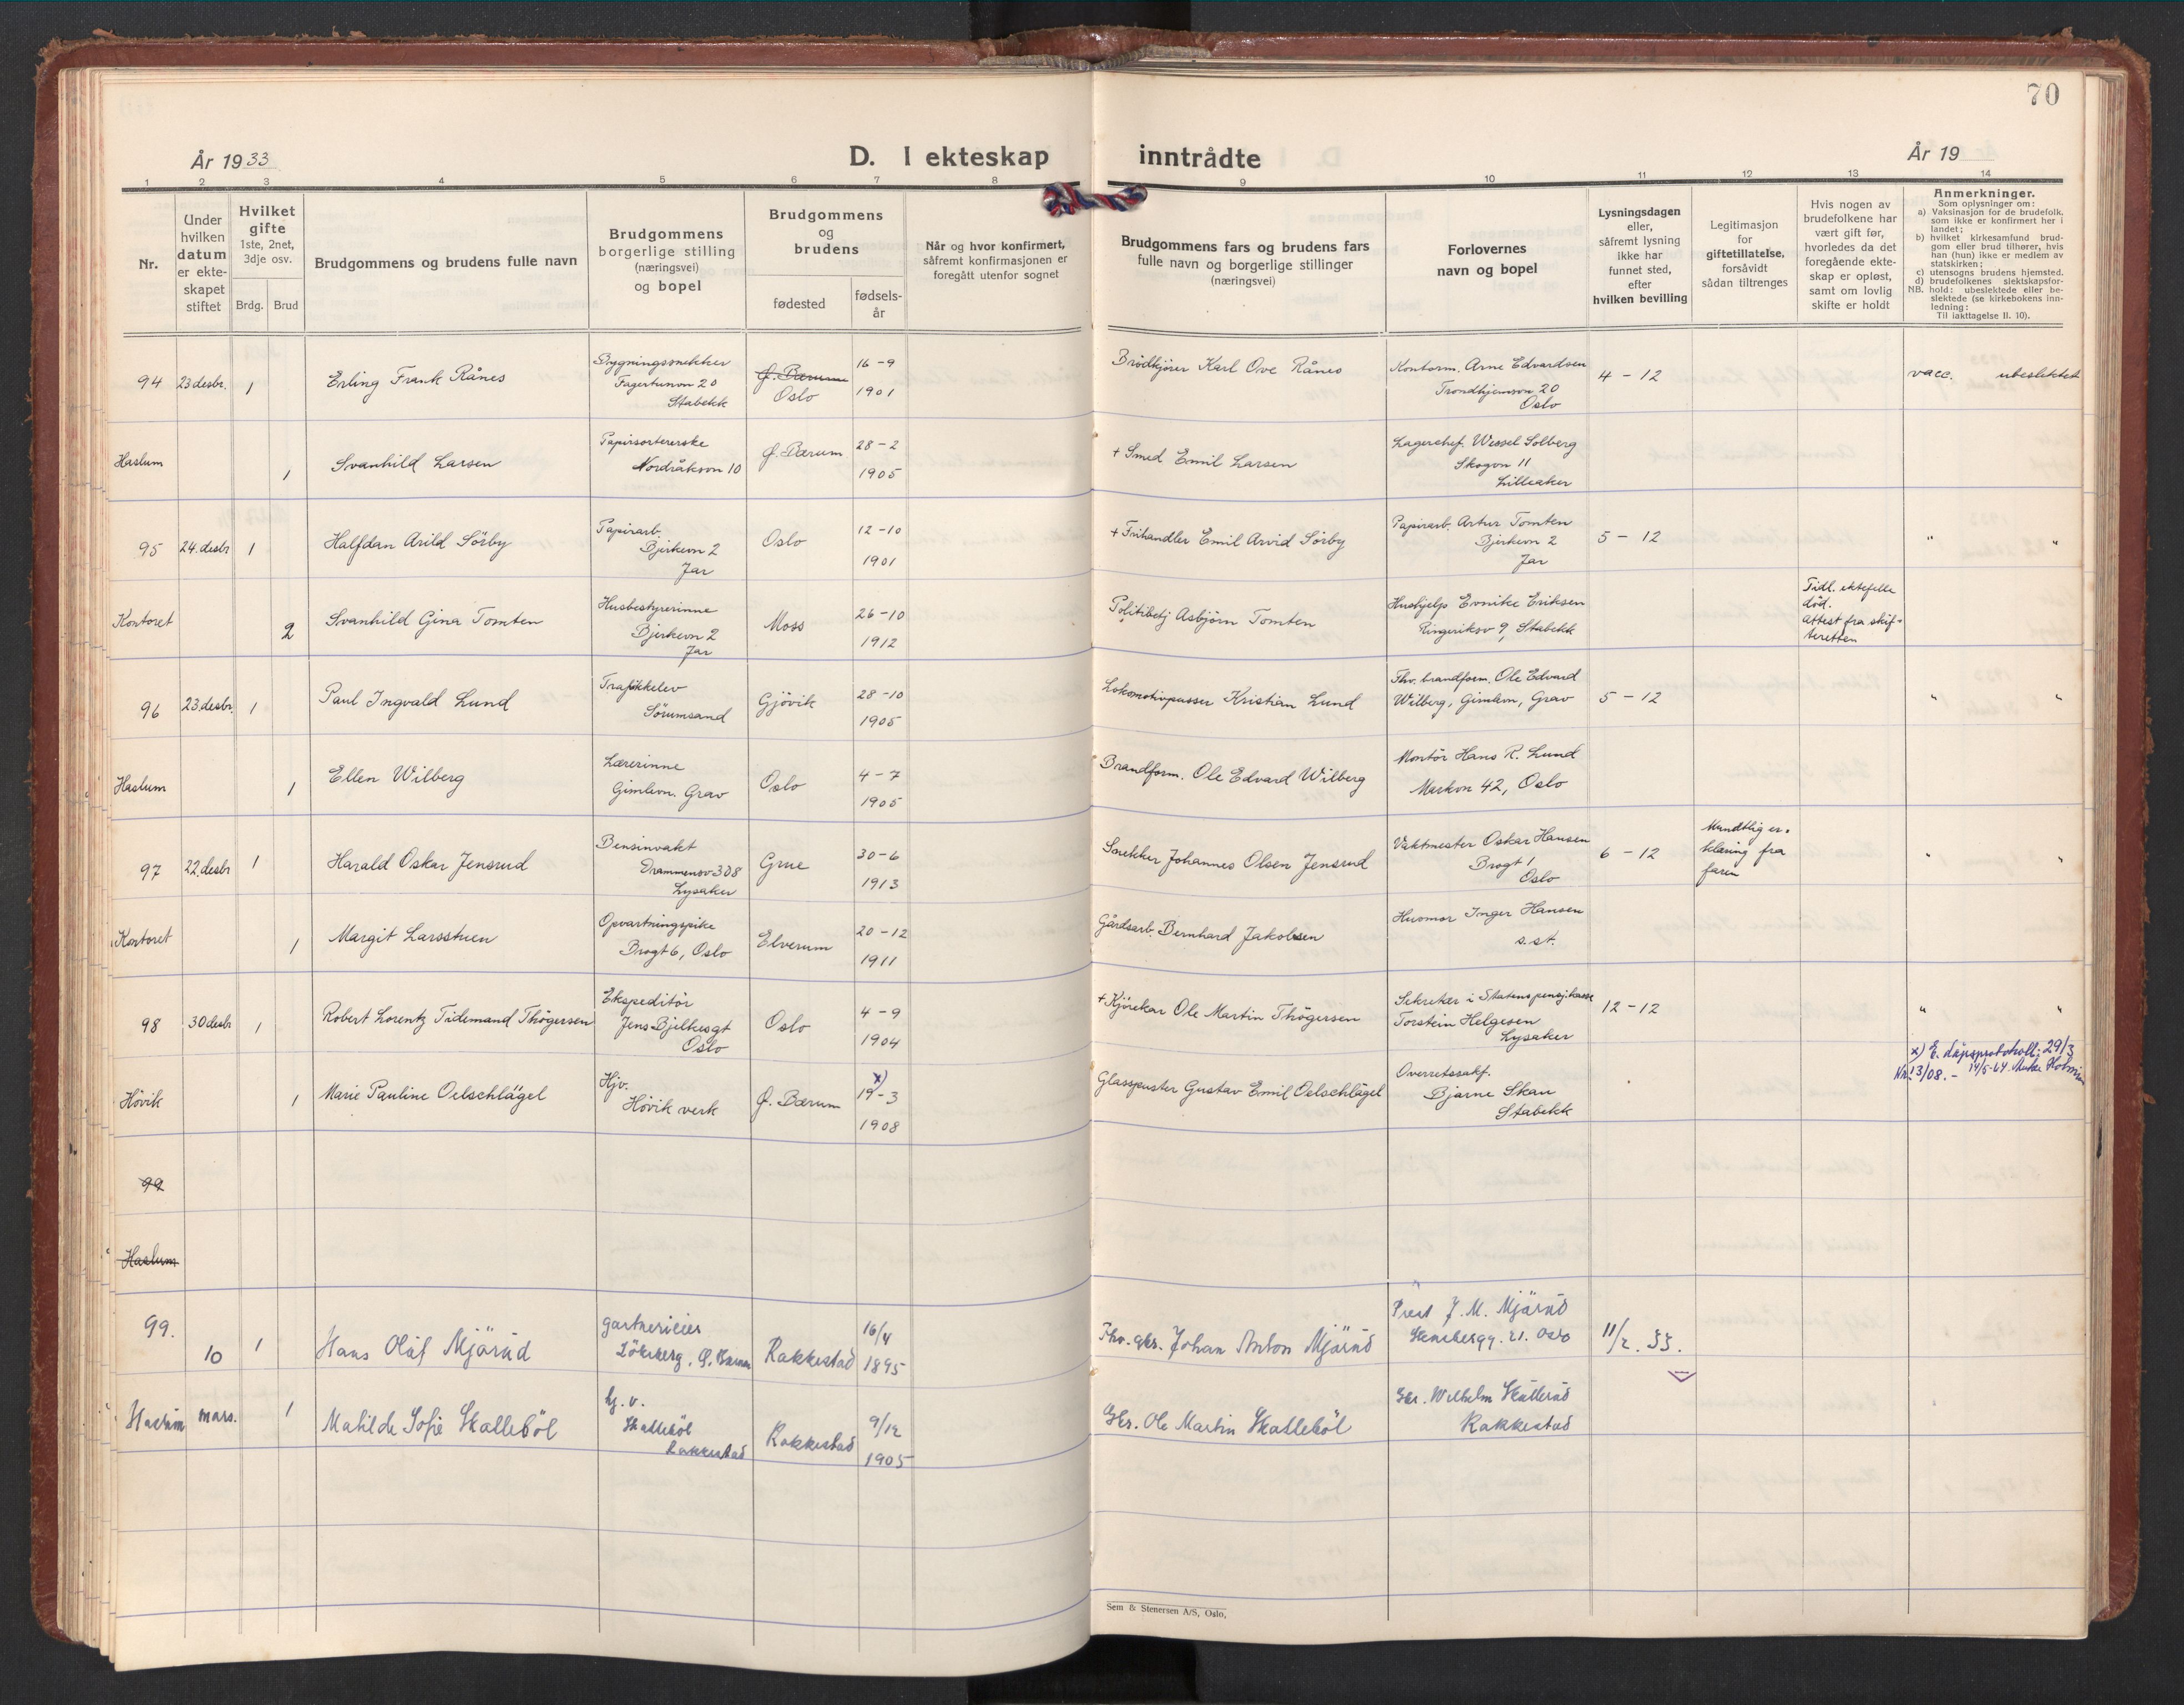 70
År 1933
D. I ekteskap inntrådte
År 19
1 2 3 4 5 6 7 8 9 10 11 12 13 14
Nr.
Under hvilken datum er ekte-skapet stiftet
Hvilket gifte 1ste, 2net, 3dje osv.
Brdg. Brud
Brudgommens og brudens fulle navn
Brudgommens borgerlige stilling (næringsvei) og bopel
Brudgommens og brudens
fødested
fødsels-år
Når og hvor konfirmert, såfremt konfirmasjonen er foregått utenfor sognet
Brudgommens fars og brudens fars fulle navn og borgerlige stillinger (næringsvei)
Forlovernes navn og bopel
Lysningsdagen eller, såfremt lysning ikke har funnet sted, efter hvilken bevilling
Legitimasjon for giftetillatelse, forsåvidt sådan tiltrenges
Hvis nogen av brudefolkene har vært gift før, hvorledes da det foregående ekte-skap er opløst, samt om lovlig skifte er holdt
Anmerkninger.
Som oplysninger om:
a) Vaksinasjon for de brudefolk. som ikke er konfirmert her i landet;
b) hvilket kirkesamfund brud-gom eller brud tilhører, hvis han (hun) ikke er medlem av statskirken;
c) utensogns brudens hjemsted.
d) brudefolkenes slektskapsfor-hold: ubeslektede eller be-slektede (se kirkebokens inn-ledning:
NB.
Til iakttagelse II. 10).
94 23 desbr. 1 Erling Frank Rånes Bygningssnekker Fagertunvn 20 Stabekk Ø. Bærum Oslo 16-9 1901 Brødkjører Karl Ove Rånes Kontorm. Arne Edvardsen Trondhjemsvn 20 Oslo 4-12 vacc. ubeslektet
Haslum 1 Svanhild Larsen Papirsortererske Nordråksvn 10 Ø. Bærum 28-2 1905 + Smed Emil Larsen Lagerchef. Wessel Solberg Skogvn 11 Lilleaker
95 24. desbr 1 Halfdan Arild Sörby Papirarb. Bjerkevn 2 Jar Oslo 12-10 1901 + Frihandler Emil Arvid Sörby Papirarb. Artur Tomten Bjerkevn 2 Jar 5-12 " "
Kontoret 2 Svanhild Gina Tomten Husbestyrerinne Bjerkevn 2 Jar Moss 26-10 1912 Politibetj Asbjörn Tomten Hushjelp Evnike Eriksen Ringeriksv 9, Stabekk Tidl. ektefelle död. Attest fra skif-teretten
96 23. desbr. 1 Paul Ingvald Lund Trafikkelev Sörumsand Gjövik 28-10 1905 Lokomotivpusser Kristian Lund Fhv. brandform. Ole Edvard Wilberg, Gimlevn, Grav 5-12 " "
Haslum 1 Ellen Wilberg Lærerinne Gimlevn. Grav Oslo 4-7 1905 Brandform. Ole Edvard Wilberg Montör Hans R. Lund Markvn 42, Oslo
97 22. desbr 1 Harald Oskar Jensrud Bensinvakt Drammensv 308 Lysaker Grue 30-6 1913 Snekker Johannes Olsen Jensrud Vaktmester Oskar Hansen Brogt 1 Oslo 6-12 Mundtlig er-klæring fra faren " "
Kontoret 1 Margit Larsstuen Opvartningspike Brogt 6, Oslo Elverum 20-12 1911 Gårdsarb. Bernhard Jakobsen Husmor Inger Hansen s. st.
98 30 desbr 1 Robert Lorentz Tidemand Thögersen Ekspeditör Jens Bjelkesgt Oslo Oslo 4-9 1904 + Kjörekar Ole Martin Thögersen Sekretær i Statens pensj.kasse Torstein Helgesen Lysaker 12-12 " "
Hövik 1 Marie Pauline Oelschlägel Hjv. Hövik verk Ø. Bærum x) 19-3 1908 Glasspuster Gustav Emil Oelschlägel Overretssakf. Bjarne Skau Stabekk x) E. dåpsprotokoll: 29/3 Nr. 13/08. - 14/5-64
99
Haslum
99. 10 1 Hans Olaf Mjörud gartnerieier Lökeberg, Ø. Bærum Rakkestad 16/4 1895 Fhv. gbr. Johan Anton Mjörud Prest J. M. Mjörud Stensbergg. 21. Oslo 11/2. 33.
Haslum mars. 1 Matilde Sofie Skalleböl hj. v. Skalleböl Rakkestad Rakkestad 9/12 1905 Gbr. Ole Martin Skalleböl Gbr. Wilhelm Skallerud Rakkestad
Sem & Stenersen A/S, Oslo,